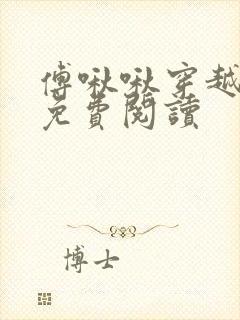 傅啾啾穿越
免費閱讀
博士